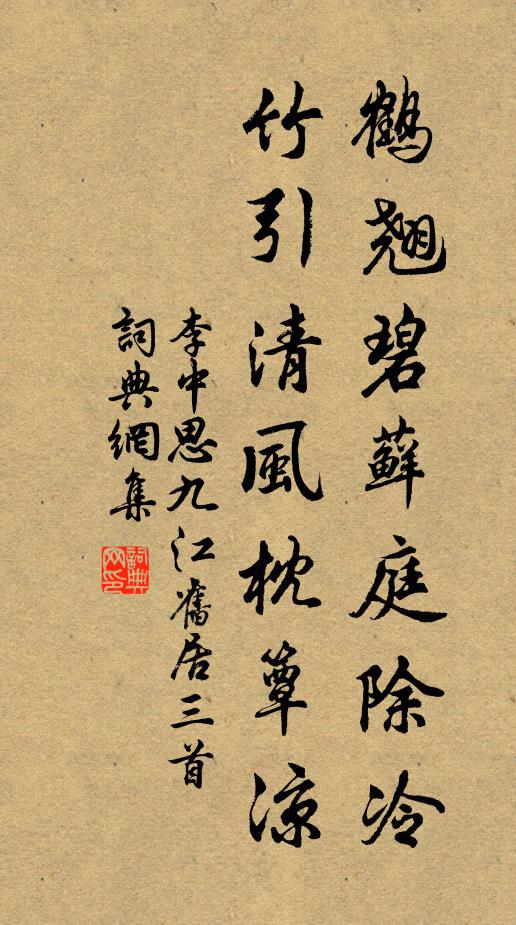 鶴翹碧蘚庭除冷
竹引清風枕簟涼
李中思九江舊居三首
詞典網集
詞典
网印